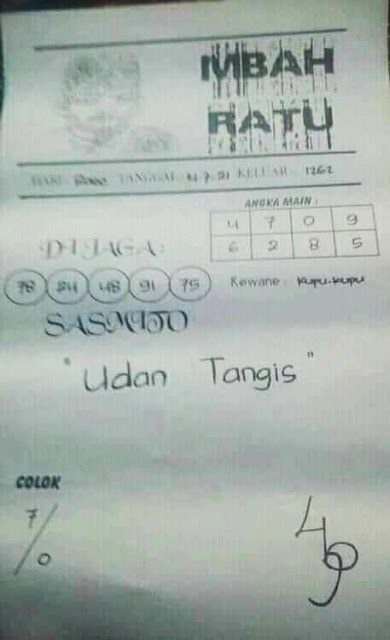 MBAH
RATU
HARI Rabu TANGGAL 14-7-21 KELUAR 1262
ANGKA MAIN :
4 7 0 9
6 2 8 5
DI JAGA :
78 24 48 91 75
Kewane : kupu-kupu
SASMITO
"Udan Tangis"
COLOK
7/0